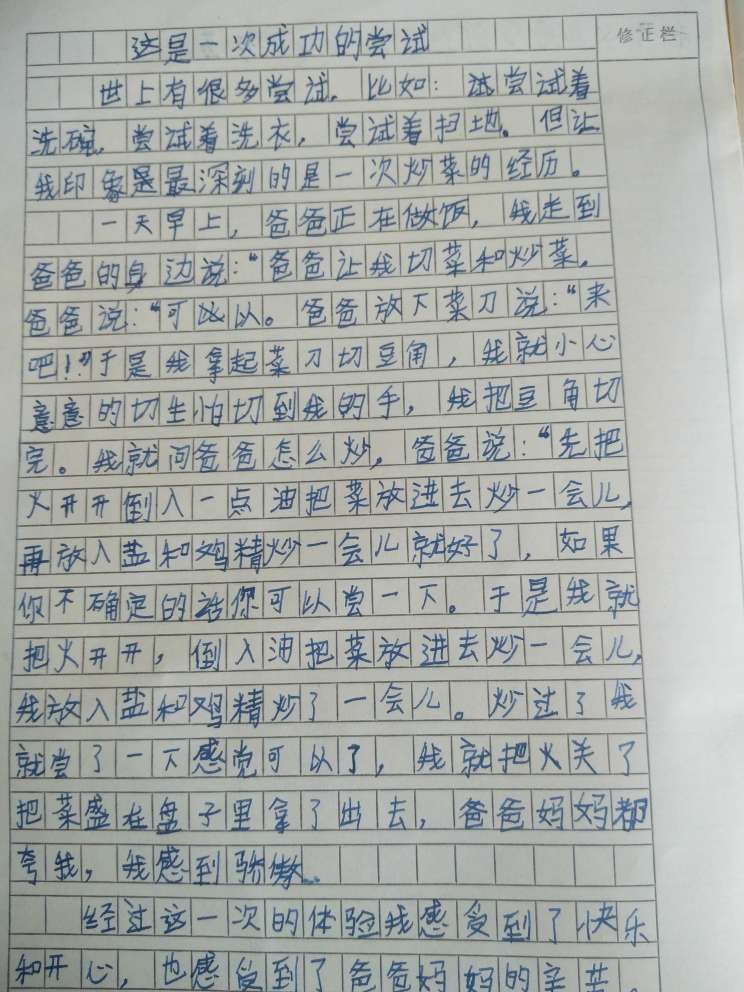 修正栏
这是一次成功的尝试
世上有很多尝试，比如：试尝试着
洗碗，尝试着洗衣，尝试着扫地。但让
我印象是最深刻的是一次炒菜的经历。
一天早上，爸爸正在做饭，我走到
爸爸的身边说：“爸爸让我切菜和炒菜，
爸爸说：“可以以。爸爸放下菜刀说：“来
吧！”于是我拿起菜刀切豆角，我就小心
意意的切生怕切到我的手，我把豆角切
完。我就问爸爸怎么炒，爸爸说：“先把
火开开倒入一点油把菜放进去炒一会儿，
再放入盐和鸡精炒一会儿就好了，如果
你不确定的话你可以尝一下。于是我就
把火开开，倒入油把菜放进去炒一会儿，
我放入盐和鸡精炒了一会儿。炒过了我
就尝了一下感觉可以了，我就把火关了
把菜盛在盘子里拿了出去，爸爸妈妈都
夸我，我感到骄傲。
经过这一次的体验我感受到了快乐
和开心，也感受到了爸爸妈妈的辛苦。